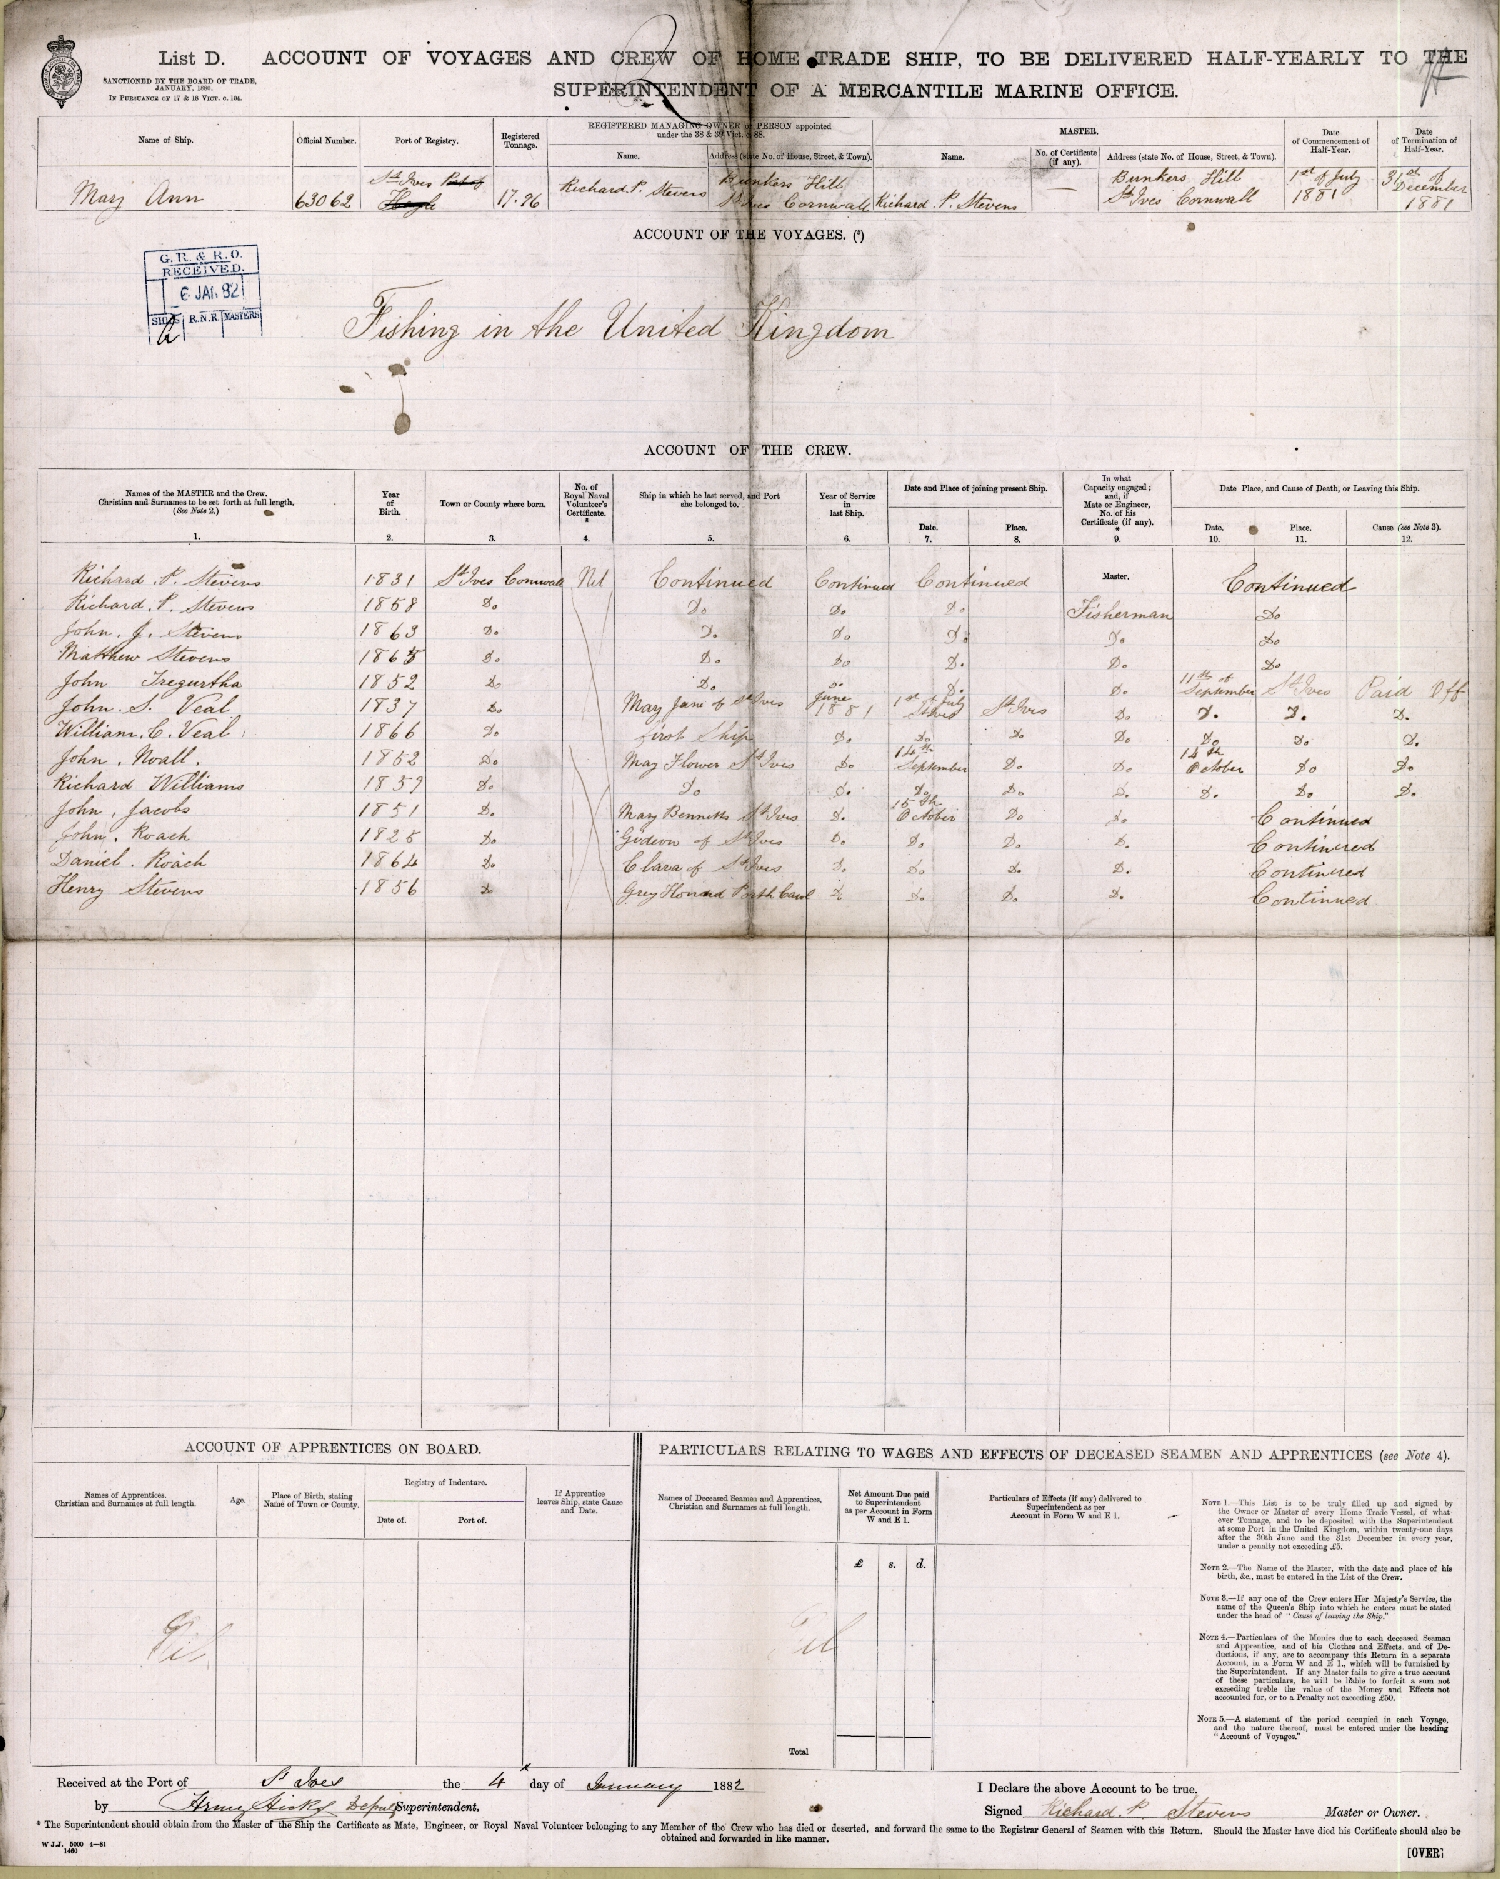 List D. ACCOUNT OF VOYAGES AND CREW OF HOME TRADE SHIP, TO BE DELIVERED HALF-YEARLY TO THE
SUPERINTENDENT OF A MERCANTILE MARINE OFFICE.
SANCTIONED BY THE BOARD OF TRADE,
JANUARY, 1880.
IN PURSUANCE OF 17 & 18 VICT. c. 104.
Name of Ship. Official Number. Port of Registry. Registered Tonnage. REGISTERED MANAGING OWNER or PERSON appointed under the 38 & 39 Vict. c. 88. Name. Address (state No. of House, Street, & Town). MASTER. Name. No. of Certificate (if any). Address (state No. of House, Street, & Town). Date of Commencement of Half-Year. Date of Termination of Half-Year.
Mary Ann 63062 St Ives 17.96 Richard P. Stevens Bunkers Hill St Ives Cornwall Richard P. Stevens — Bunkers Hill St Ives Cornwall 1st of July 1881 31st of December 1881
ACCOUNT OF THE VOYAGES. (5)
G. R. & R. O.
RECEIVED.
6 JAN. 82
SHIPS R.N.R MASTERS
Fishing in the United Kingdom
ACCOUNT OF THE CREW.
Names of the MASTER and the Crew. Christian and Surnames to be set forth at full length. (See Note 2.) Year of Birth. Town or County where born. No. of Royal Naval Volunteer's Certificate. * Ship in which he last served, and Port she belonged to. Year of Service in last Ship. Date and Place of joining present Ship. Date. Place. In what Capacity engaged; and, if Mate or Engineer, No. of his Certificate (if any). * Date Place, and Cause of Death, or Leaving this Ship. Date. Place. Cause (see Note 3).
1. 2. 3. 4. 5. 6. 7. 8. 9. 10. 11. 12.
Richard P. Stevens 1831 St Ives Cornwall Nil Continued Continued Continued Master. Continued
Richard. P. Stevens 1858 Do Do Do Do Fisherman Do
John. J. Stevens 1863 Do Do Do Do Do Do
Matthew Stevens 1865 Do Do Do Do Do Do
John Tregurtha 1852 Do Do Do Do Do 11th of September St Ives Paid Off
John. S. Veal 1837 Do Mary Jane of St Ives June 1881 1st of July St Ives Do Do Do Do
William. C. Veal 1866 Do first Ship Do Do Do Do Do Do Do
John. Noall. 1852 Do May Flower St Ives Do 14th September Do Do 14th October Do Do
Richard Williams 1859 Do Do Do Do Do Do Do Do Do
John Jacobs 1851 Do Mary Bennetts St Ives Do 15th October Do Do Continued
John. Roach 1825 Do Gideon of St Ives Do Do Do Do Continued
Daniel Roach 1864 Do Clara of St Ives Do Do Do Do Continued
Henry Stevens 1856 Do Grey Hound Do Do Do Do Continued
ACCOUNT OF APPRENTICES ON BOARD.
Names of Apprentices. Christian and Surnames at full length. Age. Place of Birth, stating Name of Town or County. Registry of Indenture. Date of. Port of. If Apprentice leaves Ship, state Cause and Date.
Nil
PARTICULARS RELATING TO WAGES AND EFFECTS OF DECEASED SEAMEN AND APPRENTICES (see Note 4).
Names of Deceased Seamen and Apprentices, Christian and Surnames at full length. Net Amount Due paid to Superintendent as per Account in Form W and E 1. Particulars of Effects (if any) delivered to Superintendent as per Account in Form W and E 1.
£ s. d.
Nil
Total
NOTE 1.—This List is to be truly filled up and signed by
the Owner or Master of every Home Trade Vessel, of what-
ever Tonnage, and to be deposited with the Superintendent
at some Port in the United Kingdom, within twenty-one days
after the 30th June and the 31st December in every year,
under a penalty not exceeding £5.
NOTE 2.—The Name of the Master, with the date and place of his
birth, &c., must be entered in the List of the Crew.
NOTE 3.—If any one of the Crew enters Her Majesty's Service, the
name of the Queen's Ship into which he enters must be stated
under the head of "Cause of leaving the Ship."
NOTE 4.—Particulars of the Monies due to each deceased Seaman
and Apprentice, and of his Clothes and Effects, and of De-
ductions, if any, are to accompany this Return in a separate
Account, in a Form W and E 1., which will be furnished by
the Superintendent. If any Master fails to give a true account
of these particulars, he will be liable to forfeit a sum not
exceeding treble the value of the Money and Effects not
accounted for, or to a Penalty not exceeding £50.
NOTE 5.—A statement of the period occupied in each Voyage,
and the nature thereof, must be entered under the heading
"Account of Voyages."
Received at the Port of St Ives the 4 day of January 1882
by Deputy Superintendent.
I Declare the above Account to be true.
Signed Richard P. Stevens Master or Owner.
* The Superintendent should obtain from the Master of the Ship the Certificate as Mate, Engineer, or Royal Naval Volunteer belonging to any Member of the Crew who has died or deserted, and forward the same to the Registrar General of Seamen with this Return. Should the Master have died his Certificate should also be
obtained and forwarded in like manner.
W J.J. 5000 4—81
1460
[OVER]